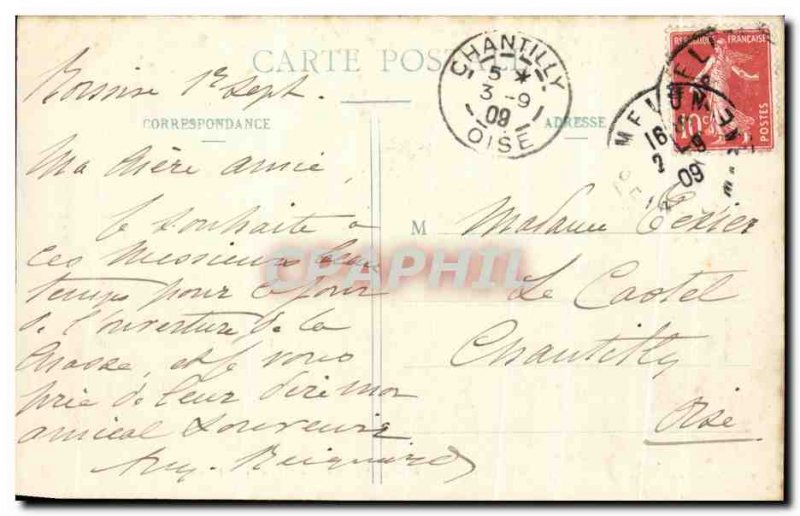 CARTE POSTALE
CHANTILLY
5 *
3 - 9
09
OISE
REPUBLIQUE FRANCAISE
10c
POSTES
MELUN
16
2 - 9
09
1er Sept.
CORRESPONDANCE
ADRESSE
Ma chère amie,
Je souhaite à
ces Messieurs beau
temps pour le jour
de l'ouverture de la
chasse, et je vous
prie de leur dire mon
amical souvenir
M
Madame
Le Castel
Chantilly
Oise
CPAPHIL